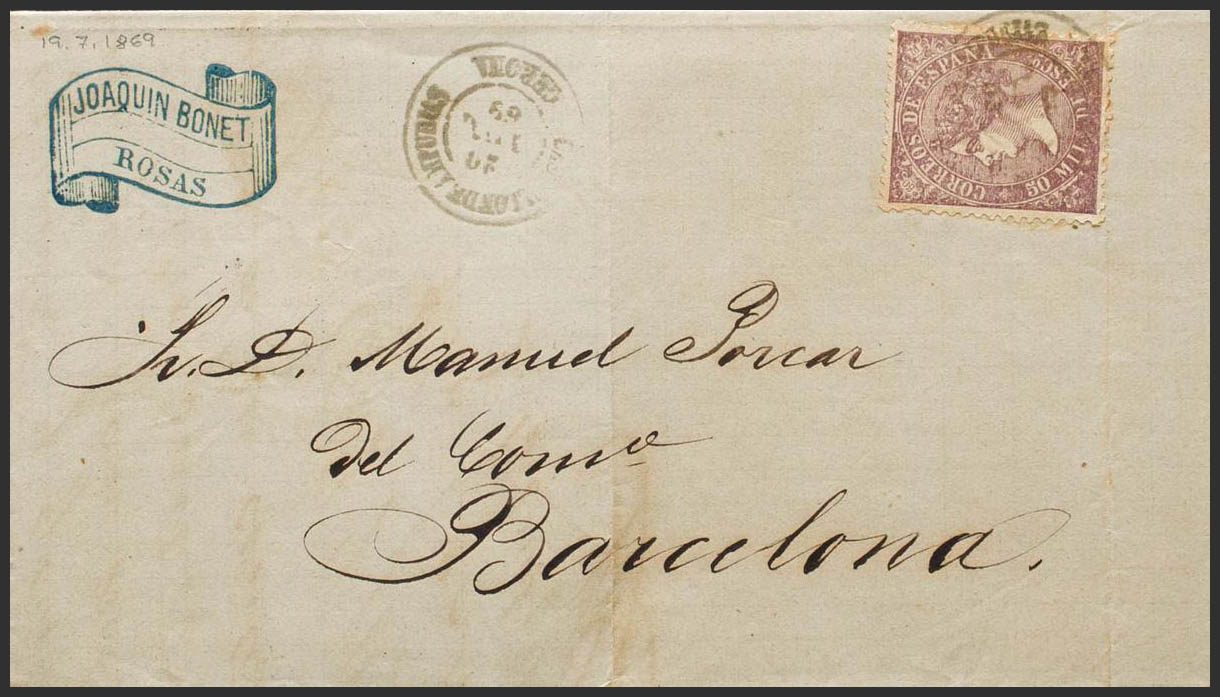 19.7.1869
JOAQUIN BONET
ROSAS
GERONA
20
JUL
69
CORREOS DE ESPAÑA
50 MIL S DE ESCO
Sr. D. Manuel Porcar
del Com.o
Barcelona.